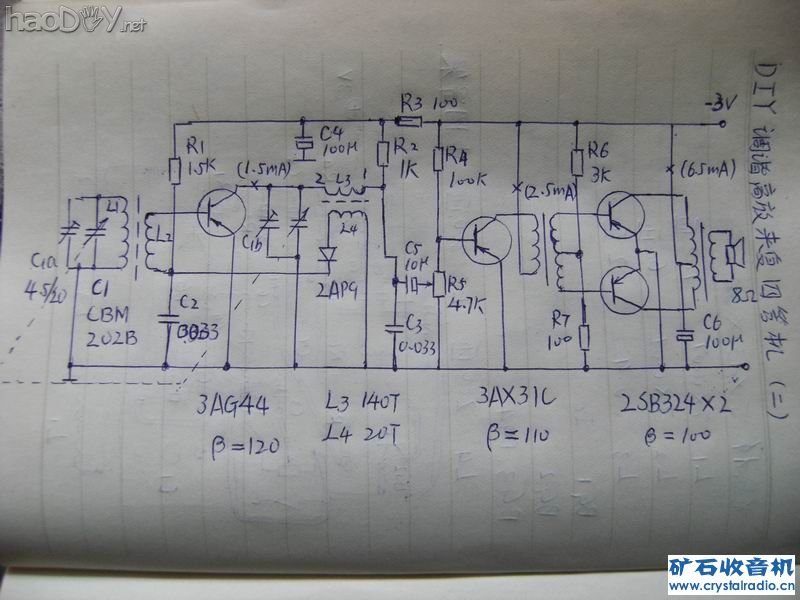 haoDIY.net
DIY 调谐高放来复四管机 (二)
-3V
R3 100
C4
100μ
R1
1.5K
(1.5mA)
R2
1K
2 L3 1
R4
100K
R6
3K
(6.5mA)
(2.5mA)
L1
L2
C1b
L4
C1a
4.5/20
C1
CBM
202B
2AP9
C5
10μ
R5
4.7K
8Ω
C2
0.033
C3
0.033
R7
100
C6
100μ
3AG44
β=120
L3 140T
L4 20T
3AX31C
β=110
2SB324×2
β=100
矿石收音机
www.crystalradio.cn